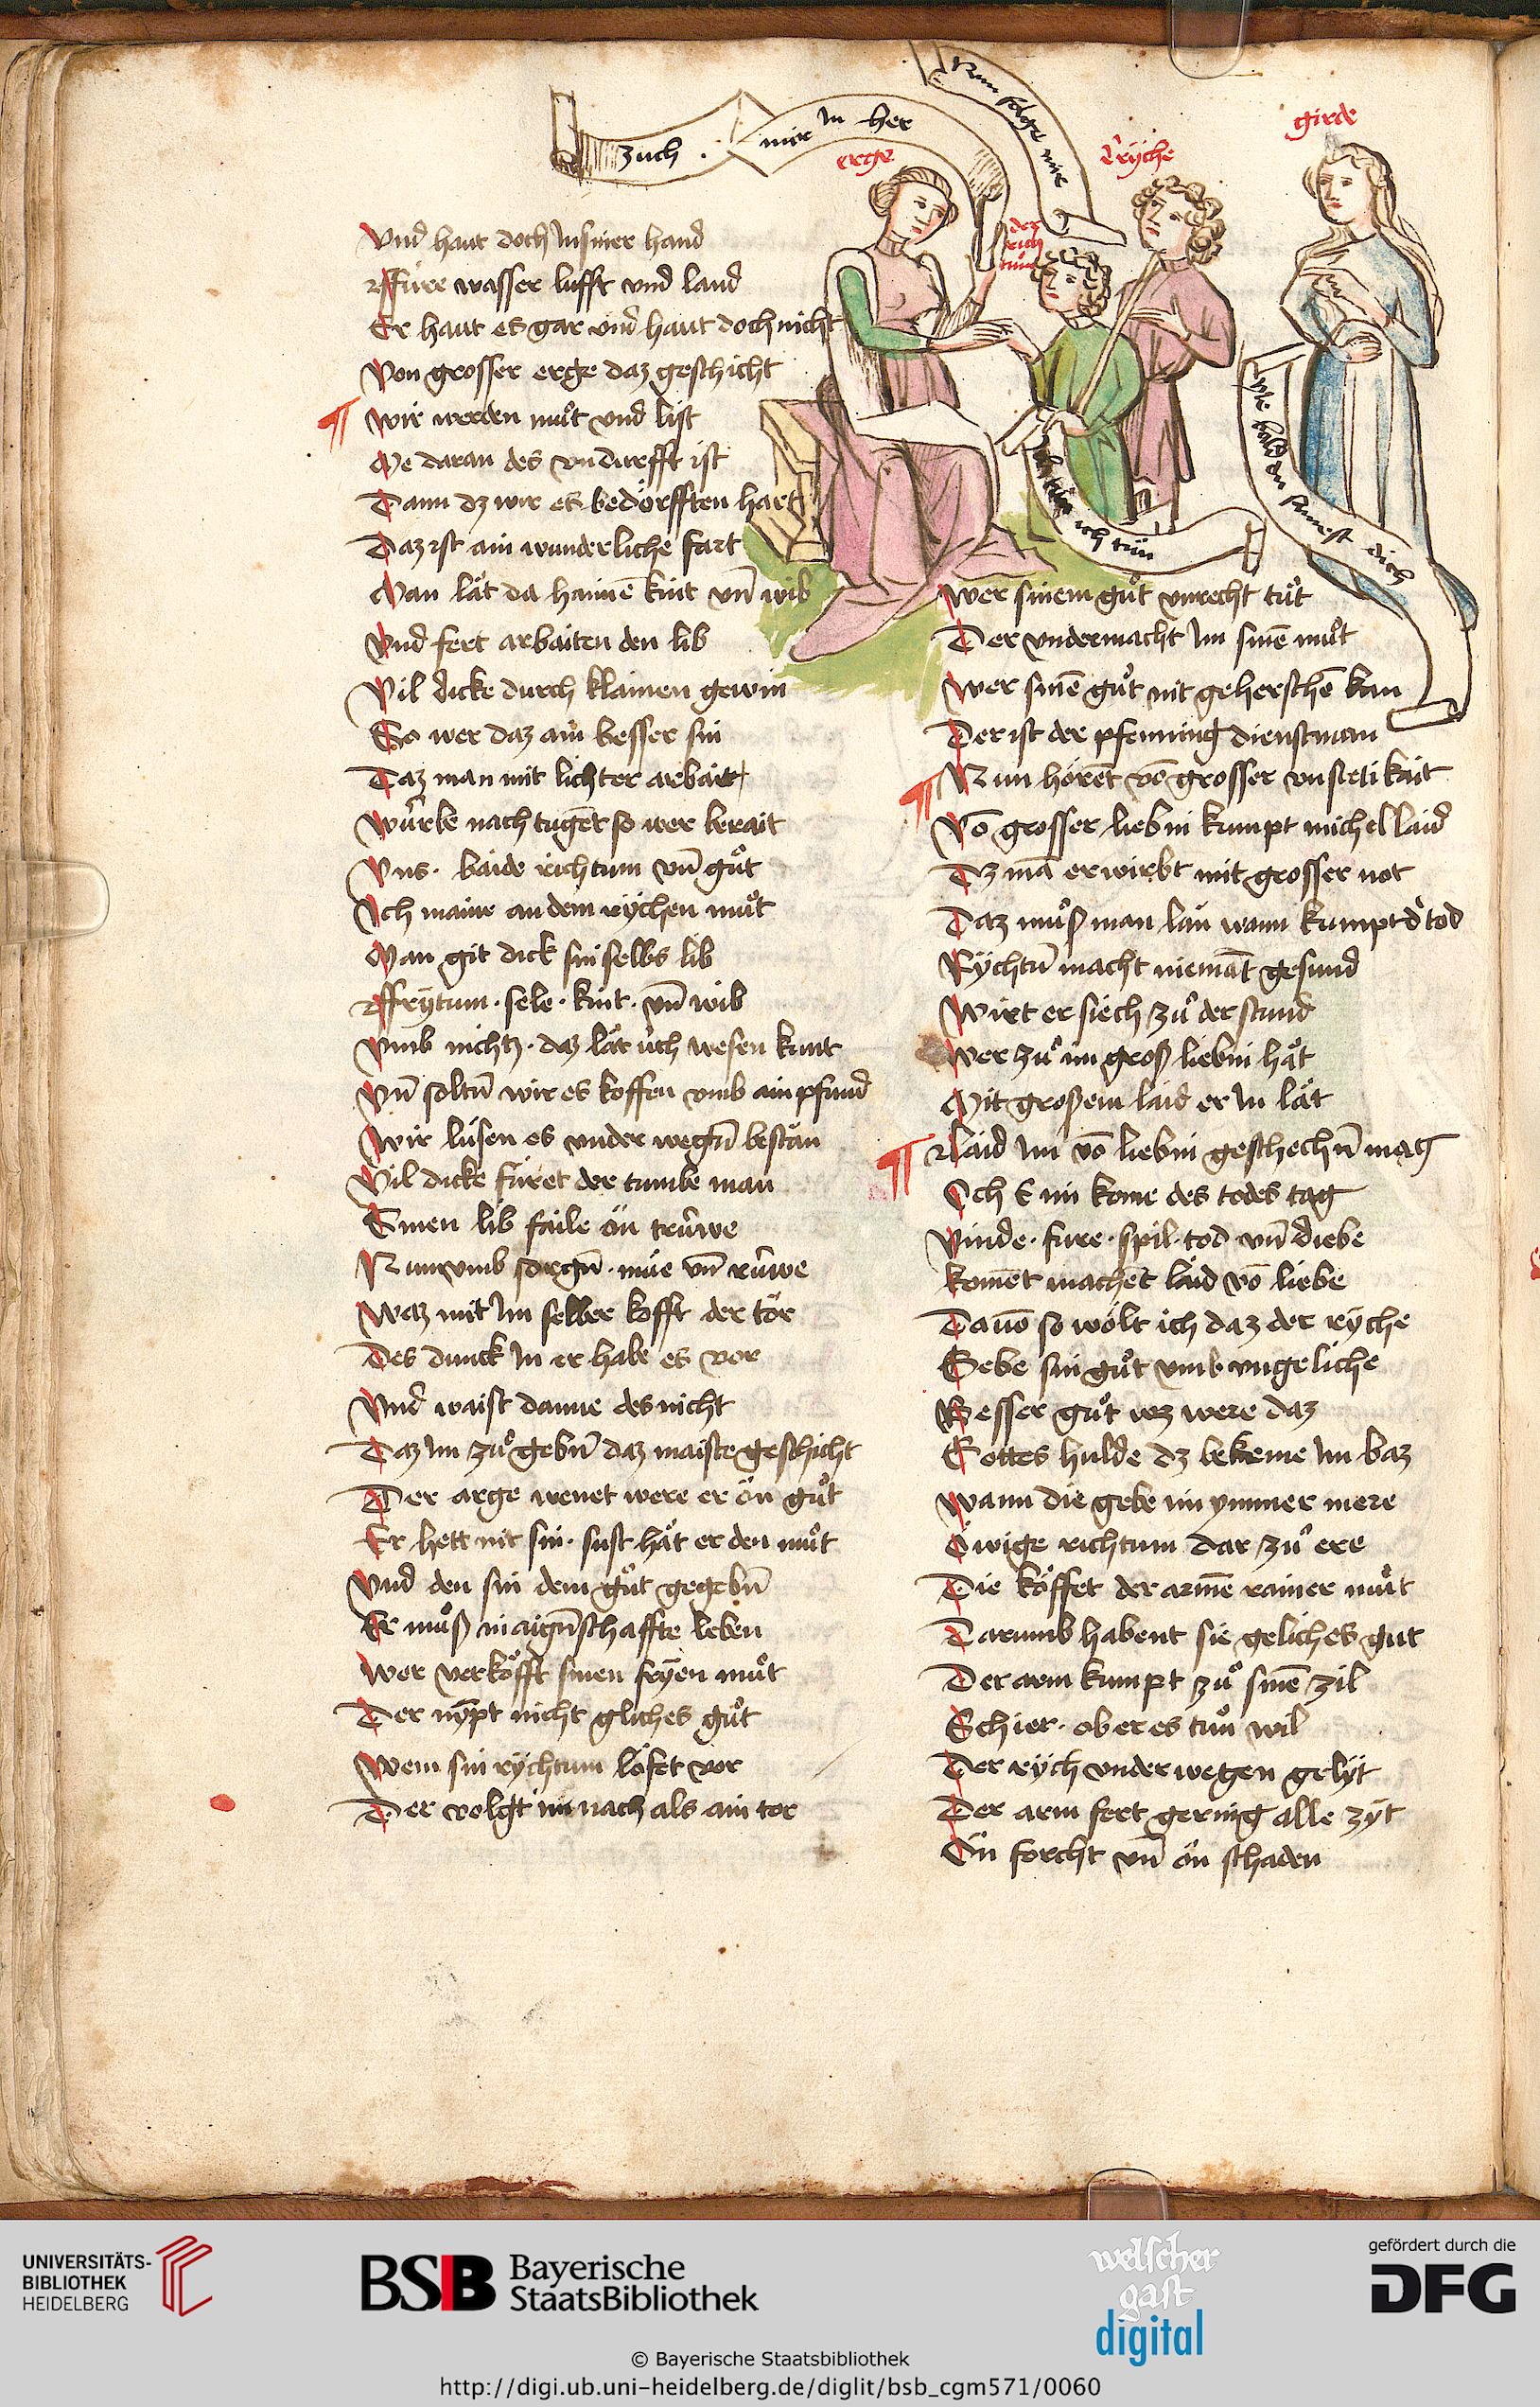 zuch . mir In her
Nun folge mir
erge
Tryche
girde
der
rich
tum
ich tůn
wie bald du samest dich
Vnd haut doch In siner hand
Ffure wasser lufft vnd land
Er haut es gar vnd haut doch nicht
Von grosser erge daz geschicht
¶ Wir werden můt vnd list
Me daran des vndurfft ist
Dann dz wir es bedörfften hart
Daz ist ain wunderliche fart
Man lät da haimē kint vn̄ wib
Vnd fert arbaiten den lib
Vil dicke durch klainen gewin
So wer daz ain besser sin
Daz man mit lichter arbait
Wurbe nach tugēt so wer berait
Vns . baide richtum vn̄ gůt
Ich maine an dem rÿchen můt
Man git dick sin selbs lib
Ffrÿtum . sele . kint . vn̄ wib
Vmb nichtz . daz lät ůch wesen kunt
Vn̄ soltn̄ wir es koffen vmb ain pfund
Wir lúsen es vnder wegn̄ bestän
Vil dicke fúret der tumbe man
Sinen lib faile ön trúwe
Nun vmb sorgn̄ . múe vn̄ rúwe
Waz mit Im selber kofft der tör
Des dunck In er habe es vor
Vnd waist danne des nicht
Daz Im zů gebn̄ daz maiste geschicht
Der arge wenet were er ön gůt
Er hett nit sin . sust hät er den můt
Vnd den sin dem gůt gegebn̄
Er můß in aign̄schaffte leben
Wer verköfft sinen frÿen můt
Der nÿpt nicht gliches gůt
Wem sin rÿchtum löfet vor
Der volgt im nach als ain tor
Wer sinem gůt vnrecht tůt
Der vndermacht Im sinē můt
Wer sinē gůt nit geherschē kan
Der ist der pfenning dienstman
¶ Nun hörēt vō grosser vnstetikait
Vō grosser liebin kumpt michel laid
Dz mā erwirbt mit grosser not
Daz můß man län wann kumpt d' tod
Rÿchtū macht niemāt gesund
Wirt er siech zů der stund
Wer zů im groß liebin hät
Mit großem laid er In lät
¶ Laid Im vō liebin geschechn̄ mag
Och E im kome des todes tag
Vinde . fure . spil . tod vn̄ diebe
komēt machēt laid vō liebe
Dauō so wólt ich daz der rÿche
Gebe sin gůt vmb vngeliche
Besser gůt wz were daz
Gottes hulde dz bekeme Im baz
Wann die gebe im ymmer mere
Öwige richtum dar zů ere
Die köffet der armē rainer můt
Darumb habent sie geliches gut
Der arm kumpt zů sinē zil
Schier . ob er es tůn wil
Der rÿch vnder wegen gelÿt
Der arm fert gering alle zÿt
Ön forcht vn̄ ön schaden
UNIVERSITÄTS-
BIBLIOTHEK
HEIDELBERG
BSB Bayerische
StaatsBibliothek
welscher
gast
digital
gefördert durch die
DFG
© Bayerische Staatsbibliothek
http://digi.ub.uni-heidelberg.de/diglit/bsb_cgm571/0060